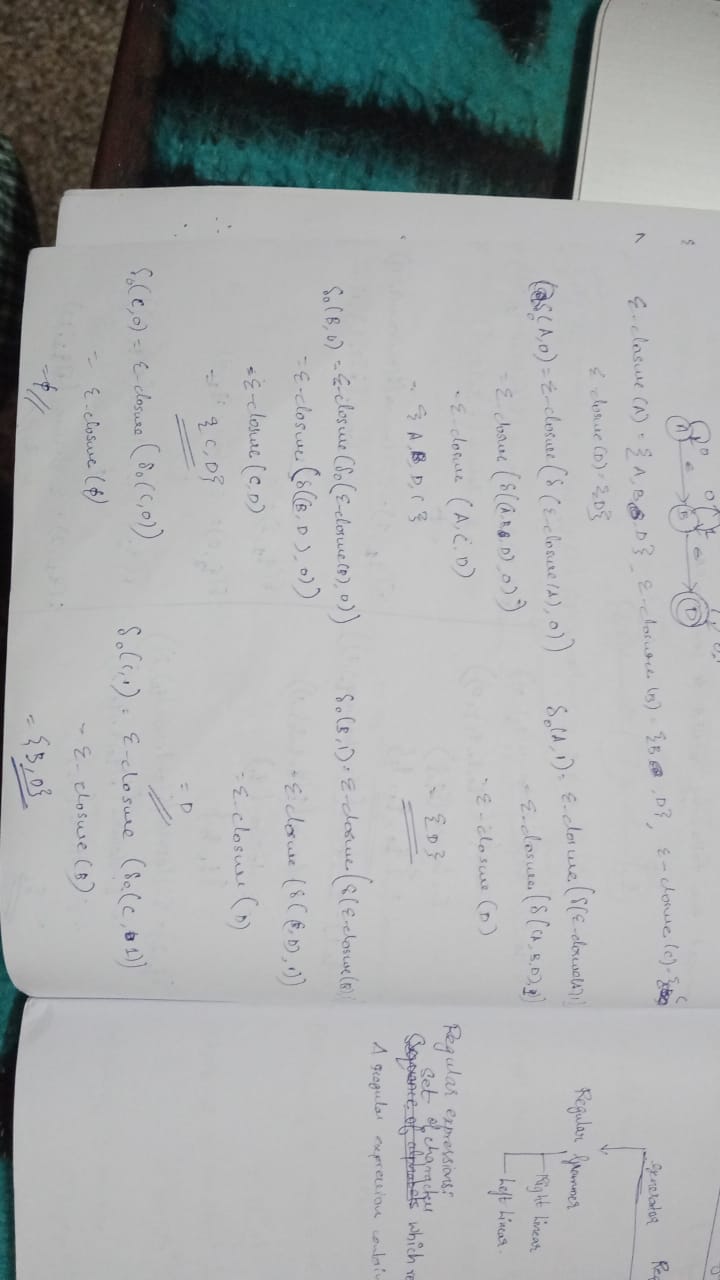 0 0 1 0,
A ε B ε D
ε-closure (A) = { A, B, D}, ε-closure (B) = {B, D}, ε-closure (C) = {C
ε closure (D) = {D}
δ₀(A,0) = ε-closure (δ (ε-closure(A), 0))
= ε closure (δ((A, B, D), 0))
= ε-closure (A, C, D)
= { A, B, D, C }
δ₀(A, 1) = ε-closure (δ(ε-closure(A),1)
= ε-closure (δ((A, B, D), 1)
= ε-closure (D)
= {D}
δ₀(B, 0) = ε-closure (δ₀(ε-closure(B), 0))
= ε-closure (δ((B, D), 0))
= ε-closure (C, D)
= {C, D}
δ₀(B, 1) = ε-closure (δ(ε-closure(B)
= ε closure (δ((B, D), 1))
= ε-closure (D)
= D
δ₀(C, 0) = ε-closure (δ₀(C, 0))
= ε-closure (ϕ)
= ϕ
δ₀(C, 1) = ε-closure (δ₀(C, 1))
= ε-closure (B)
= {B, D}
generator
Regular Grammer
Right Linear
Left Linear.
Regular expressions:
Set of character
Sequence of alphabets which
A regular expression